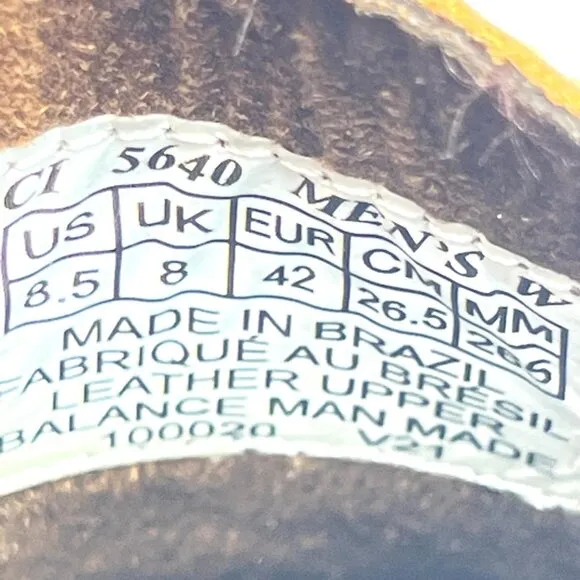 CI 5640 MEN'S W
US UK EUR CM MM
8.5 8 42 26.5 266
MADE IN BRAZIL
FABRIQUÉ AU BRÉSIL
LEATHER UPPER
BALANCE MAN MADE
100020 V21